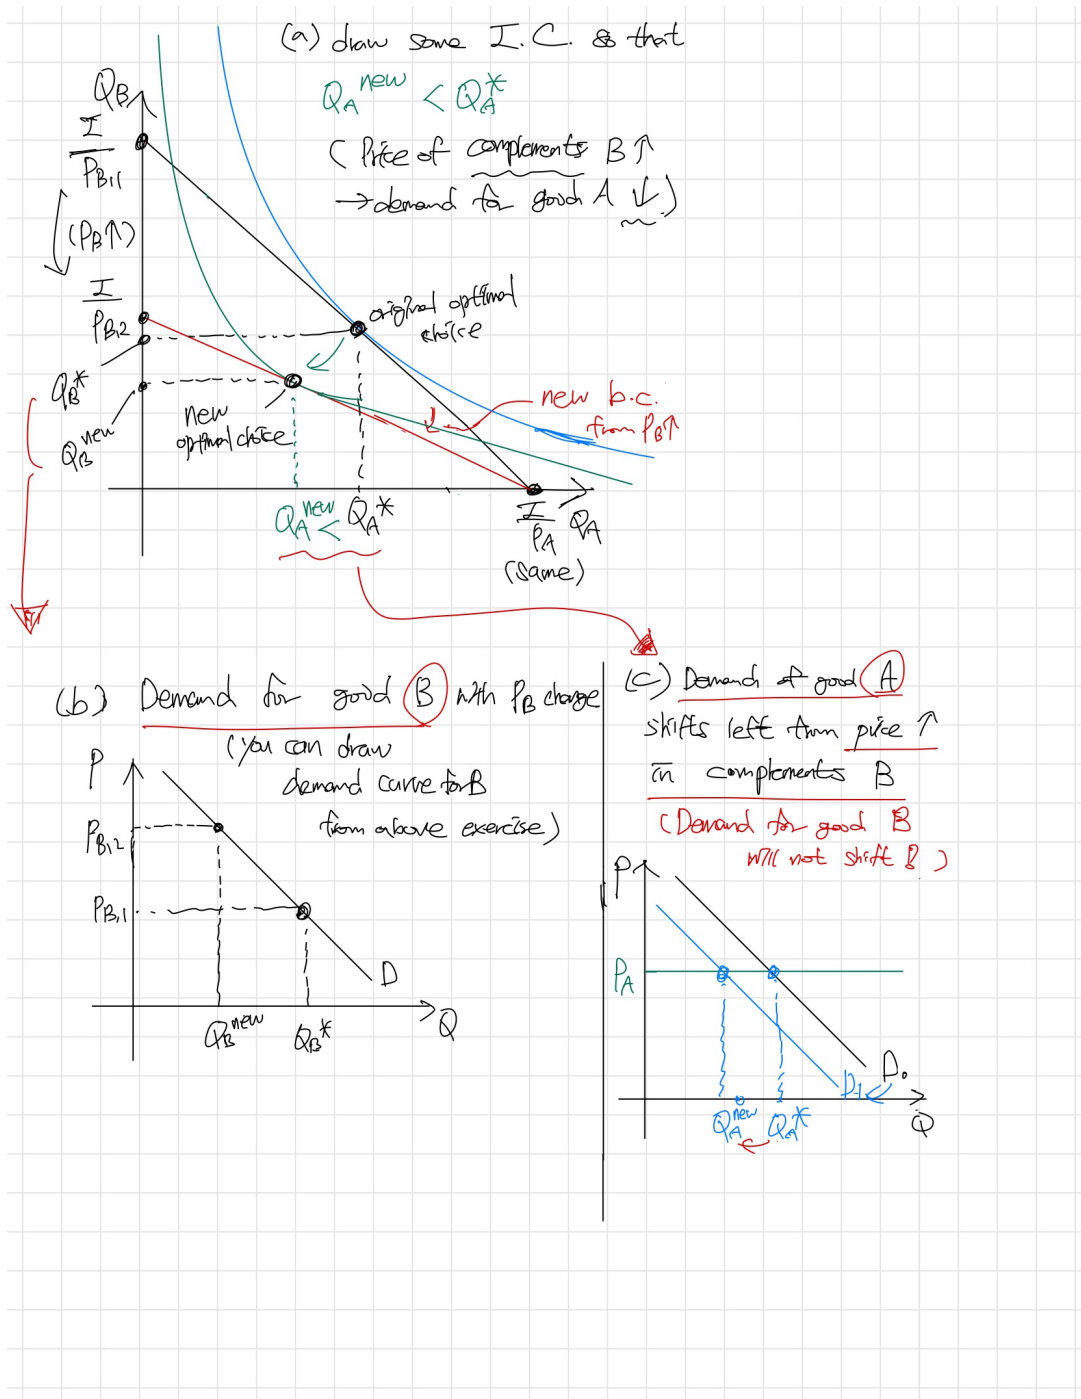 (a) draw some I.C. so that
Q_A^new < Q_A^*
(Price of complements B ↑
→ demand for good A ↓)
Q_B
I
P_B,1
(P_B↑)
I
P_B,2
Q_B^*
Q_B^new
original optimal
choice
new
optimal choice
new b.c.
from P_B↑
Q_A^new < Q_A^*
I
P_A
Q_A
(same)
(b) Demand for good B with P_B change
(you can draw
demand curve for B
from above exercise)
P
P_B,2
P_B,1
D
Q_B^new
Q_B^*
Q
(c) Demand of good A
shifts left from price ↑
in complements B
(Demand for good B
will not shift!)
P
P_A
D_0
D_1
Q_A^new
Q_A^*
Q